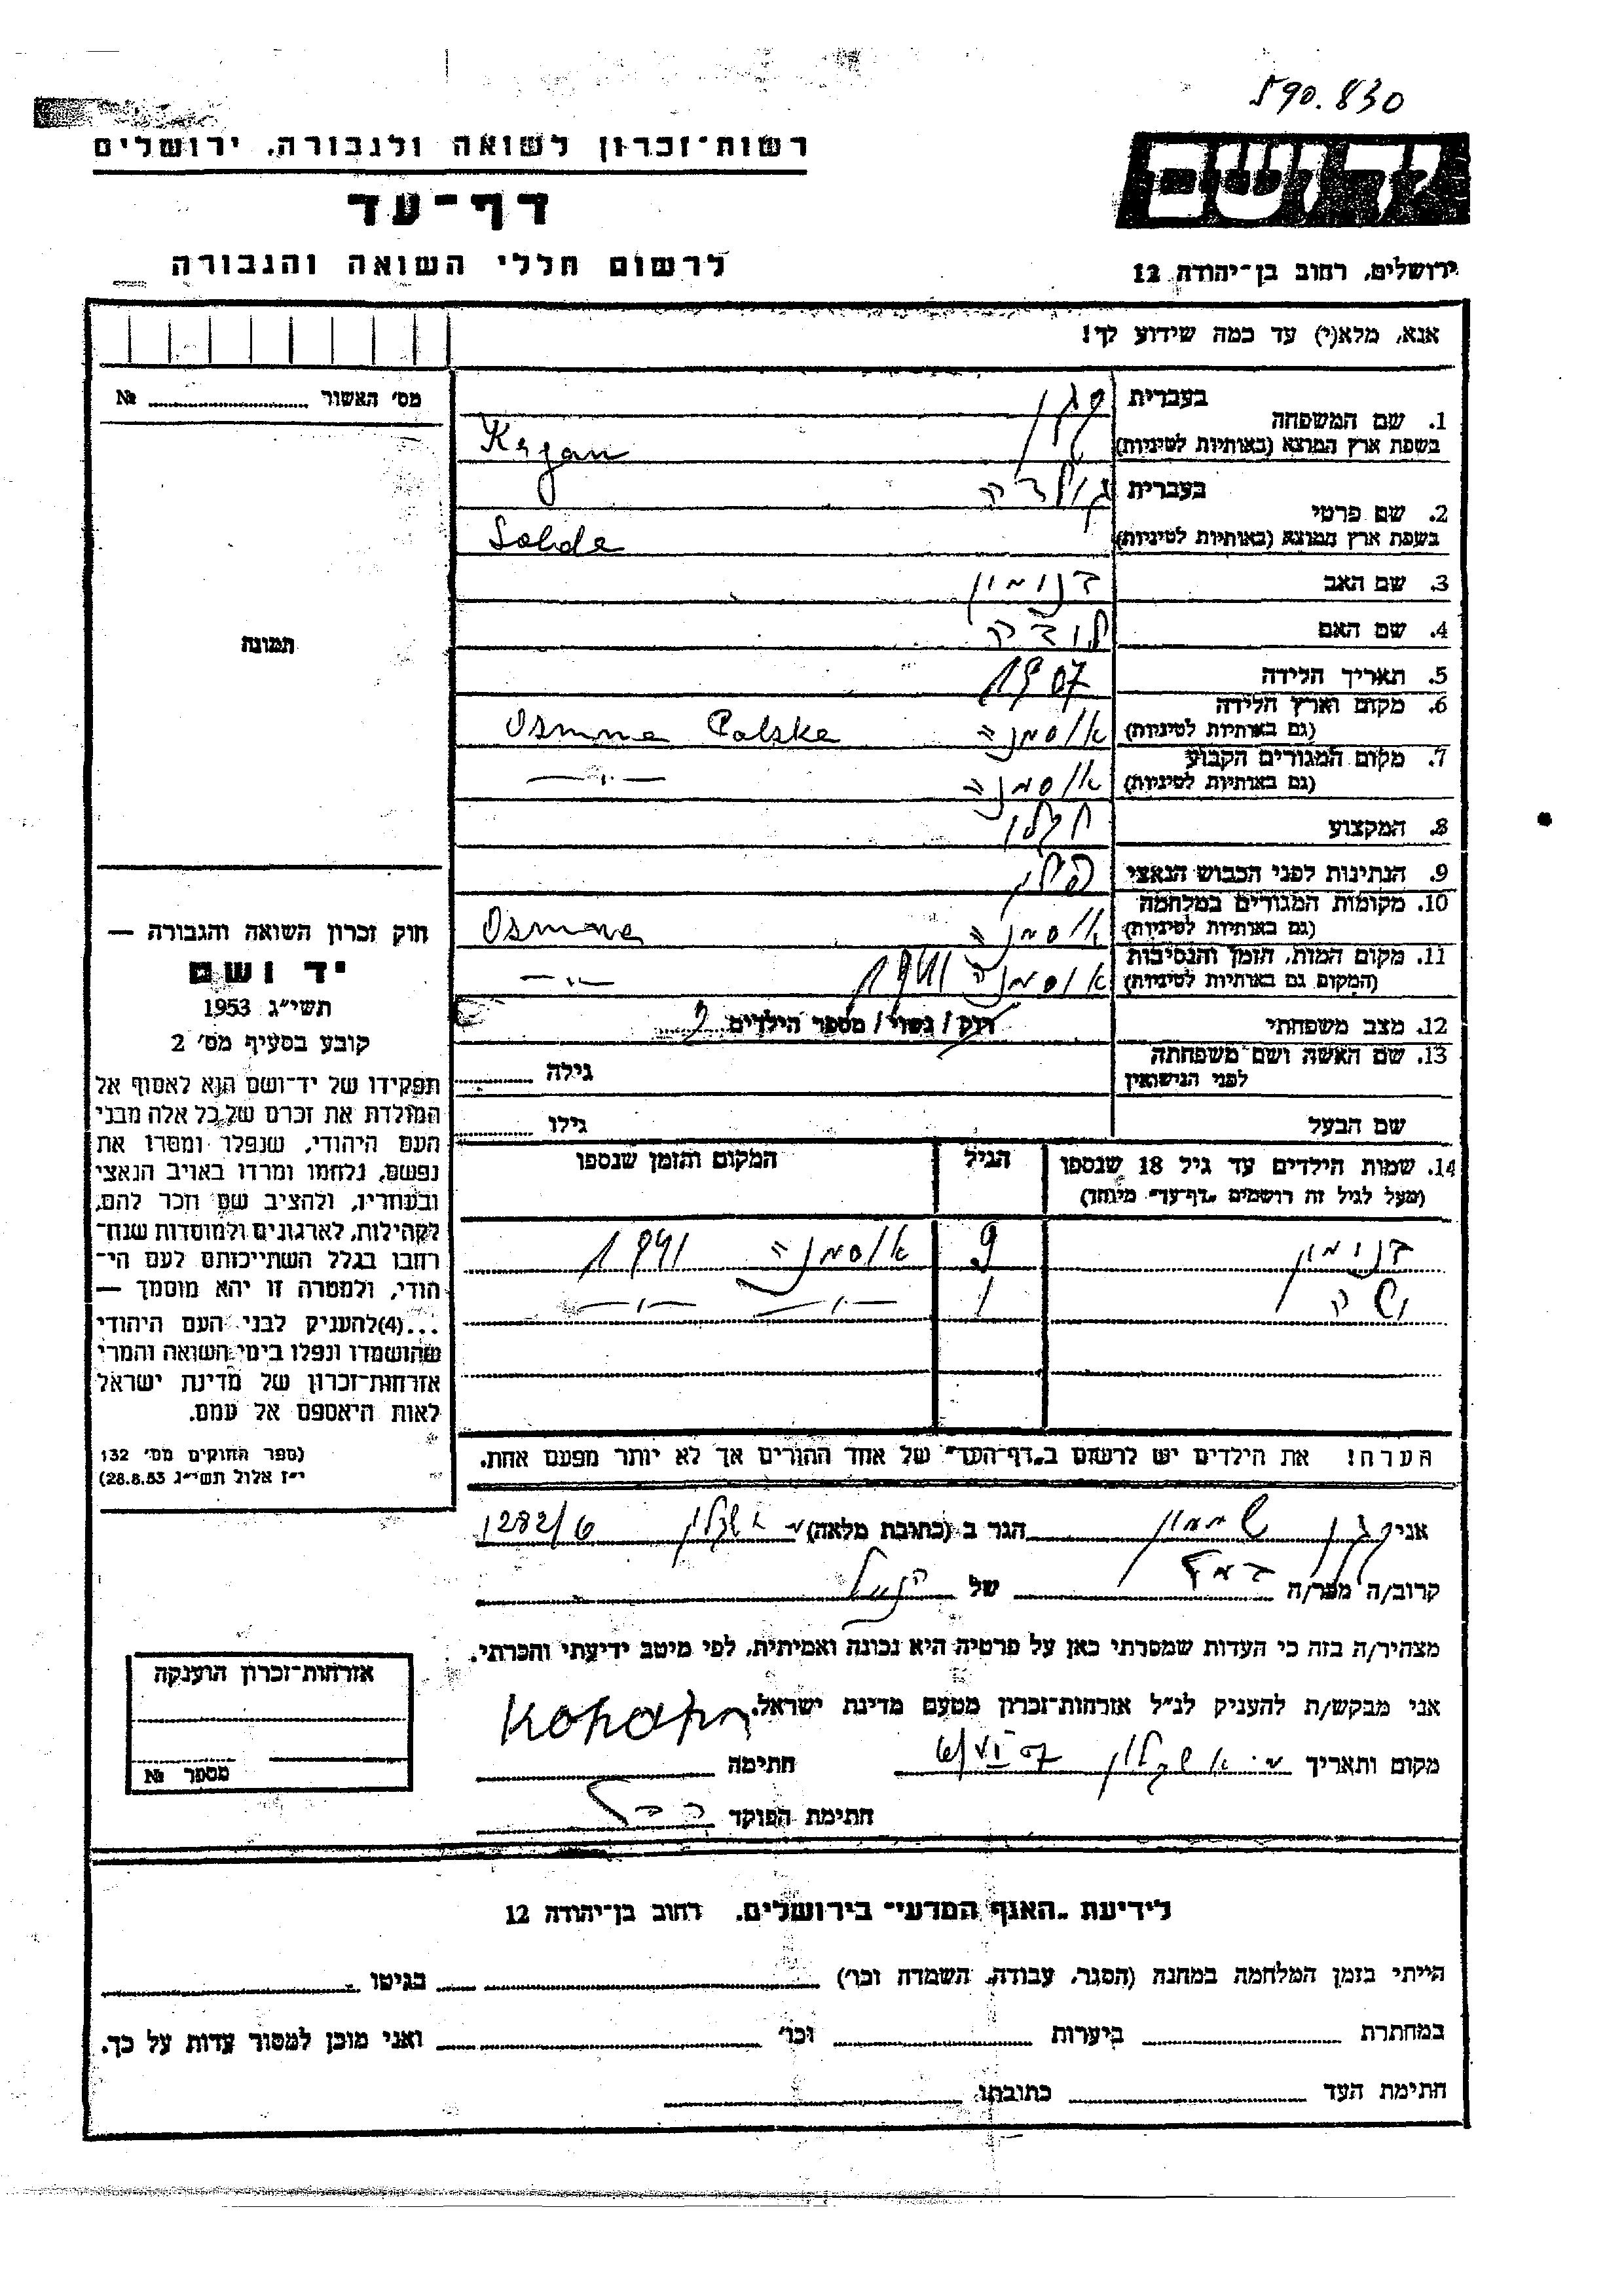 590.830
רשות־זכרון לשואה ולגבורה, ירושלים
יד ושם
דף־עד
לרשום חללי השואה והגבורה
ירושלים, רחוב בן־יהודה 12
אנא, מלא(י) עד כמה שידוע לך!
מס' האשור № 
1. שם המשפחה
בעברית קגן
בשפת ארץ המוצא (באותיות לטיניות) Kagan
2. שם פרטי
בעברית גולדה
בשפת ארץ המוצא (באותיות לטיניות)
3. שם האב
4. שם האם
5. תאריך הלידה 1907
6. מקום וארץ הלידה
(גם באותיות לטיניות) אוסמנה Osmne Polske
7. מקום המגורים הקבוע
(גם באותיות לטיניות) אוסמנה —"—
8. המקצוע
9. הנתינות לפני הכבוש הנאצי פולין
10. מקומות המגורים במלחמה
(גם באותיות לטיניות) אוסמנה Osmone
11. מקום המות, הזמן והנסיבות
(המקום גם באותיות לטיניות) אוסמנה 1941 —"—
12. מצב משפחתי רוק / נשוי / מספר הילדים 2
13. שם האשה ושם משפחתה
לפני הנישואין
גילה
שם הבעל
גילו
14. שמות הילדים עד גיל 18 שנספו
(מעל לגיל זה רושמים „דף־עד" מיוחד)
הגיל
המקום והזמן שנספו
9 אוסמנה 1941
—"— —"—
הערה! את הילדים יש לרשום ב„דף־העד" של אחד ההורים אך לא יותר מפעם אחת.
תמונה
חוק זכרון השואה והגבורה —
יד ושם
תשי"ג 1953
קובע בסעיף מס' 2
תפקידו של יד־ושם הוא לאסוף אל
המולדת את זכרם של כל אלה מבני
העם היהודי, שנפלו ומסרו את
נפשם, נלחמו ומרדו באויב הנאצי
ובעוזריו, ולהציב שם וזכר להם,
לקהילות, לארגונים ולמוסדות שנח־
רבו בגלל השתייכותם לעם הי־
הודי, ולמטרה זו יהא מוסמך —
...(4)להעניק לבני העם היהודי
שהושמדו ונפלו בימי השואה והמרי
אזרחות־זכרון של מדינת ישראל
לאות היאספם אל עמם.
(ספר החוקים מס' 132
י"ז אלול תשי"ג 28.8.53)
אני קגן שמעון הגר ב (כתובת מלאה) אשקלון 1282/6
קרוב/ה מכר/ה של הנ"ל
מצהיר/ה בזה כי העדות שמסרתי כאן על פרטיה היא נכונה ואמיתית, לפי מיטב ידיעתי והכרתי.
אני מבקש/ת להעניק לנ"ל אזרחות־זכרון מטעם מדינת ישראל.
מקום ותאריך אשקלון
חתימה
חתימת הפוקד
אזרחות־זכרון הוענקה
מספר №
לידיעת „האגף המדעי" בירושלים. רחוב בן־יהודה 12
הייתי בזמן המלחמה במחנה (הסגר, עבודה, השמדה וכו') בגיטו
במחתרת ביערות וכו' ואני מוכן למסור עדות על כך.
חתימת העד כתובתו